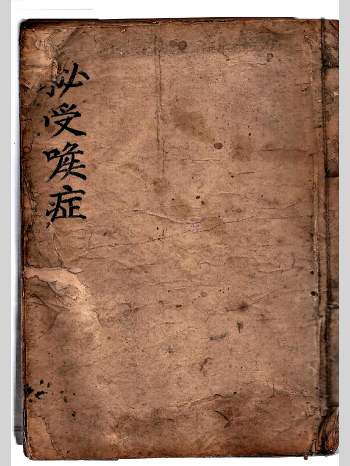 秘受喉症